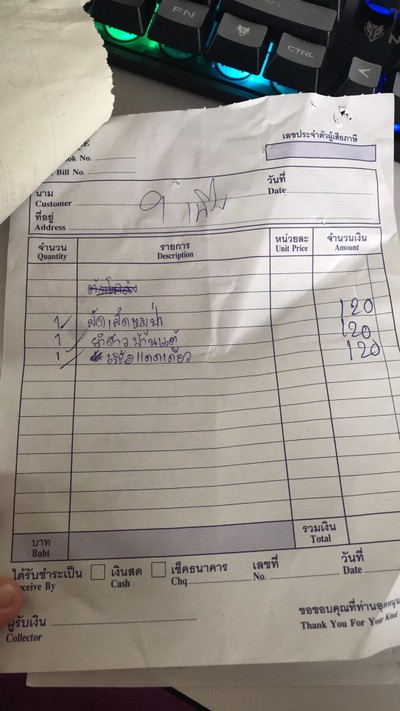 FN
CTRL
เลขประจำตัวผู้เสียภาษี
ok No.
Bill No.
นาม
Customer
วันที่
Date
ที่อยู่
Address
จำนวน
Quantity
รายการ
Description
หน่วยละ
Unit Price
จำนวนเงิน
Amount
1 ผัดเผ็ดหมูป่า 120
1 120
1 แดดเดียว 120
บาท
Baht
รวมเงิน
Total
ได้รับชำระเป็น เงินสด เช็คธนาคาร เลขที่ วันที่
eceive By Cash Chq. No. Date
ผู้รับเงิน
Collector
ขอขอบคุณที่ท่านอุดหนุน
Thank You For Your Kind